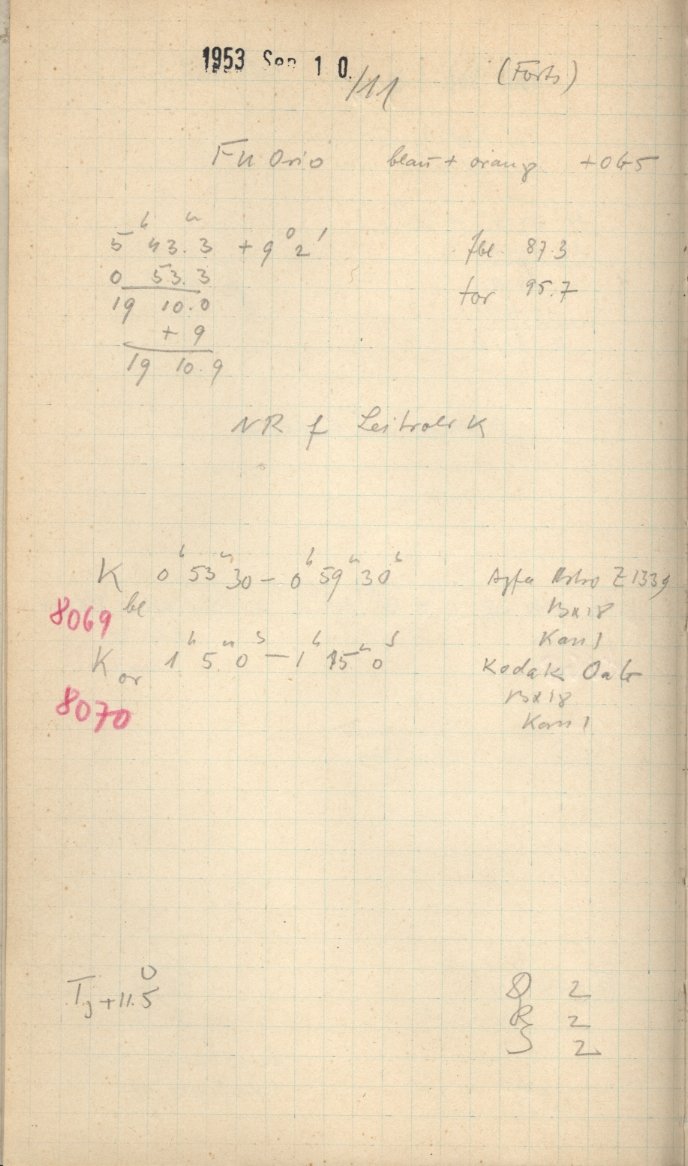 1953 Sep 10./11 (Forts)
Fu Orio blau + orang + OG5
5h 43.3m + 9° 2' fbl 87.3
0 53.3 for 95.7
19 10.0
+ 9
19 10.9
NR f
K bl 0h 53m 30 – 0h 59m 30s Agfa Astro Z1339
8069 13x18
Kass 1
K or 1h 5m 0s – 1h 15m 0s Kodak OaG
8070 13x18
Kass 1
+11.5° 2
R 2
S 2